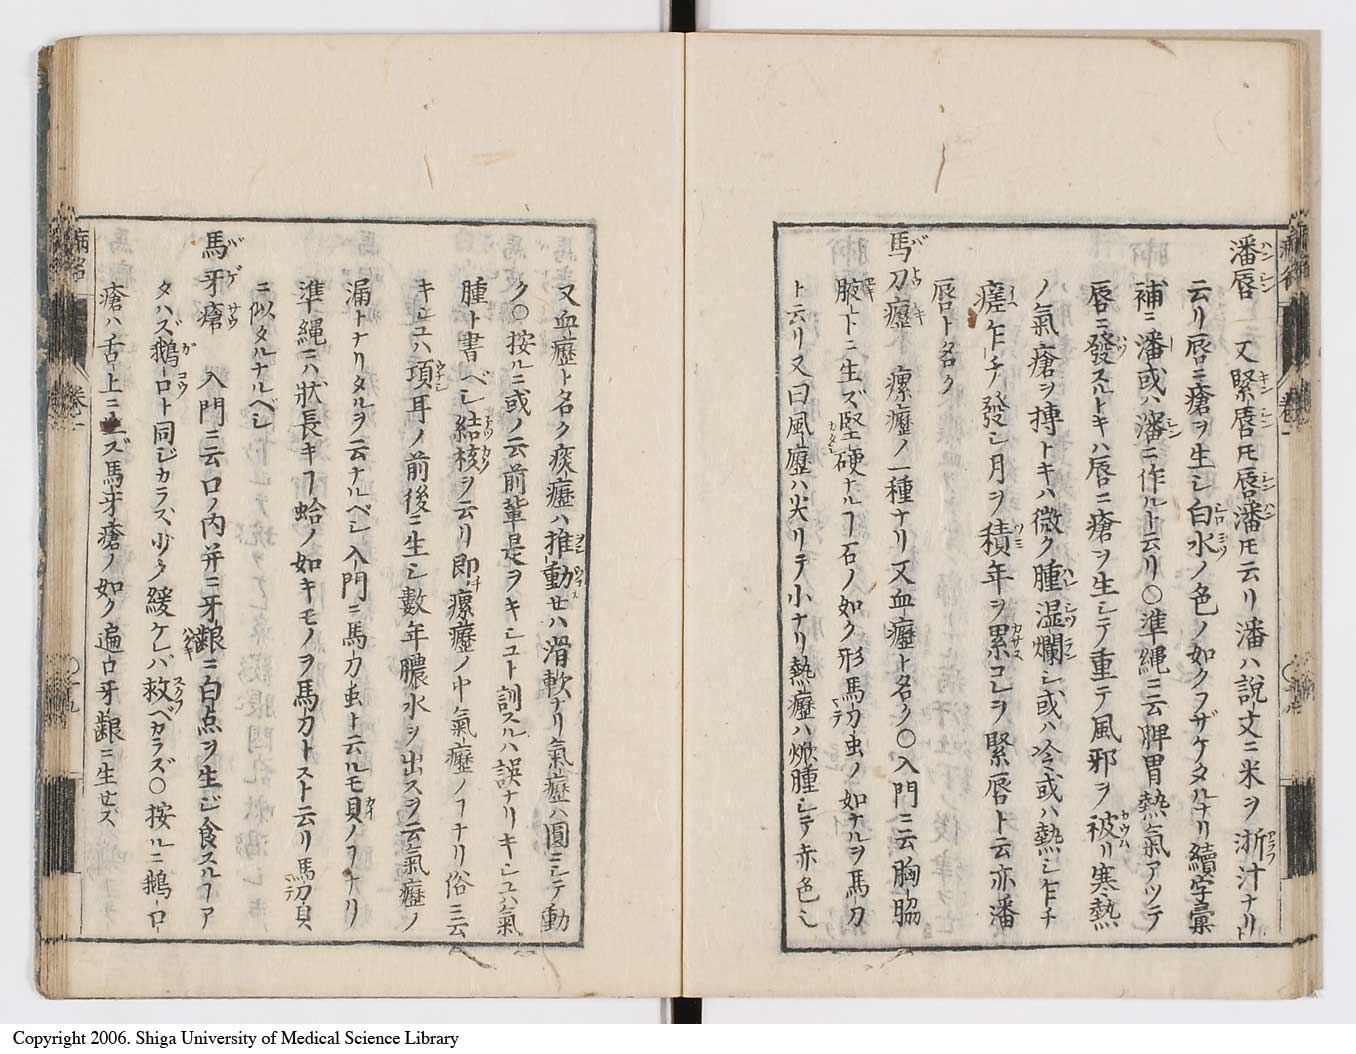 潘唇 又緊唇トモ唇潘トモ云リ潘ハ説文ニ米ヲ淅汁ナリト
云リ唇ニ瘡ヲ生シ白水ノ色ノ如クフザケタルナリ續字彙
補ニ潘或ハ瀋ニ作ルト云リ○準縄ニ云脾胃熱氣アツテ
唇ニ發スルトキハ唇ニ瘡ヲ生シテ重テ風邪ヲ被リ寒熱
ノ氣瘡ヲ搏トキハ微ク腫湿爛シ或ハ冷或ハ熱シ乍チ
瘥乍チ發シ月ヲ積年ヲ累コレヲ緊唇ト云亦潘
唇ト名ク
馬刀癧 瘰癧ノ一種ナリ又血癧ト名ク○入門ニ云胸脇
腋下ニ生ズ堅硬ナルヿ石ノ如ク形馬刀虫ノ如ナルヲ馬刀
ト云リ又曰風癧ハ尖リテ小ナリ熱癧ハ焮腫シテ赤色シ
又血癧ト名ク痰癧ハ推動セハ滑軟ナリ氣癧ハ圓ニシテ動
ク○按ルニ或ノ云前輩是ヲキシユト訓スルハ誤ナリキシユハ氣
腫ト書ベシ結核ヲ云リ即チ瘰癧ノ中氣癧ノヿナリ俗ニ云
キシユハ項耳ノ前後ニ生シ數年膿水ヲ出スヲ云氣癧ノ
漏トナリタルヲ云ナルベシ入門ニ馬刀虫ト云ルモ貝ノヿナリ
準縄ニハ状長キヿ蛤ノ如キモノヲ馬刀トスト云リ馬刀貝
ニ似タルナルベシ
馬牙瘡 入門ニ云口ノ内并ニ牙齦ニ白点ヲ生ジ食スルヿア
タハズ鵞口ト同ジカラス少ク緩ケバ救ベカラズ○按ルニ鵞口
瘡ハ舌上ニ生ズ馬牙瘡ノ如ク遍口牙齦ニ生セズ
病名
卷一